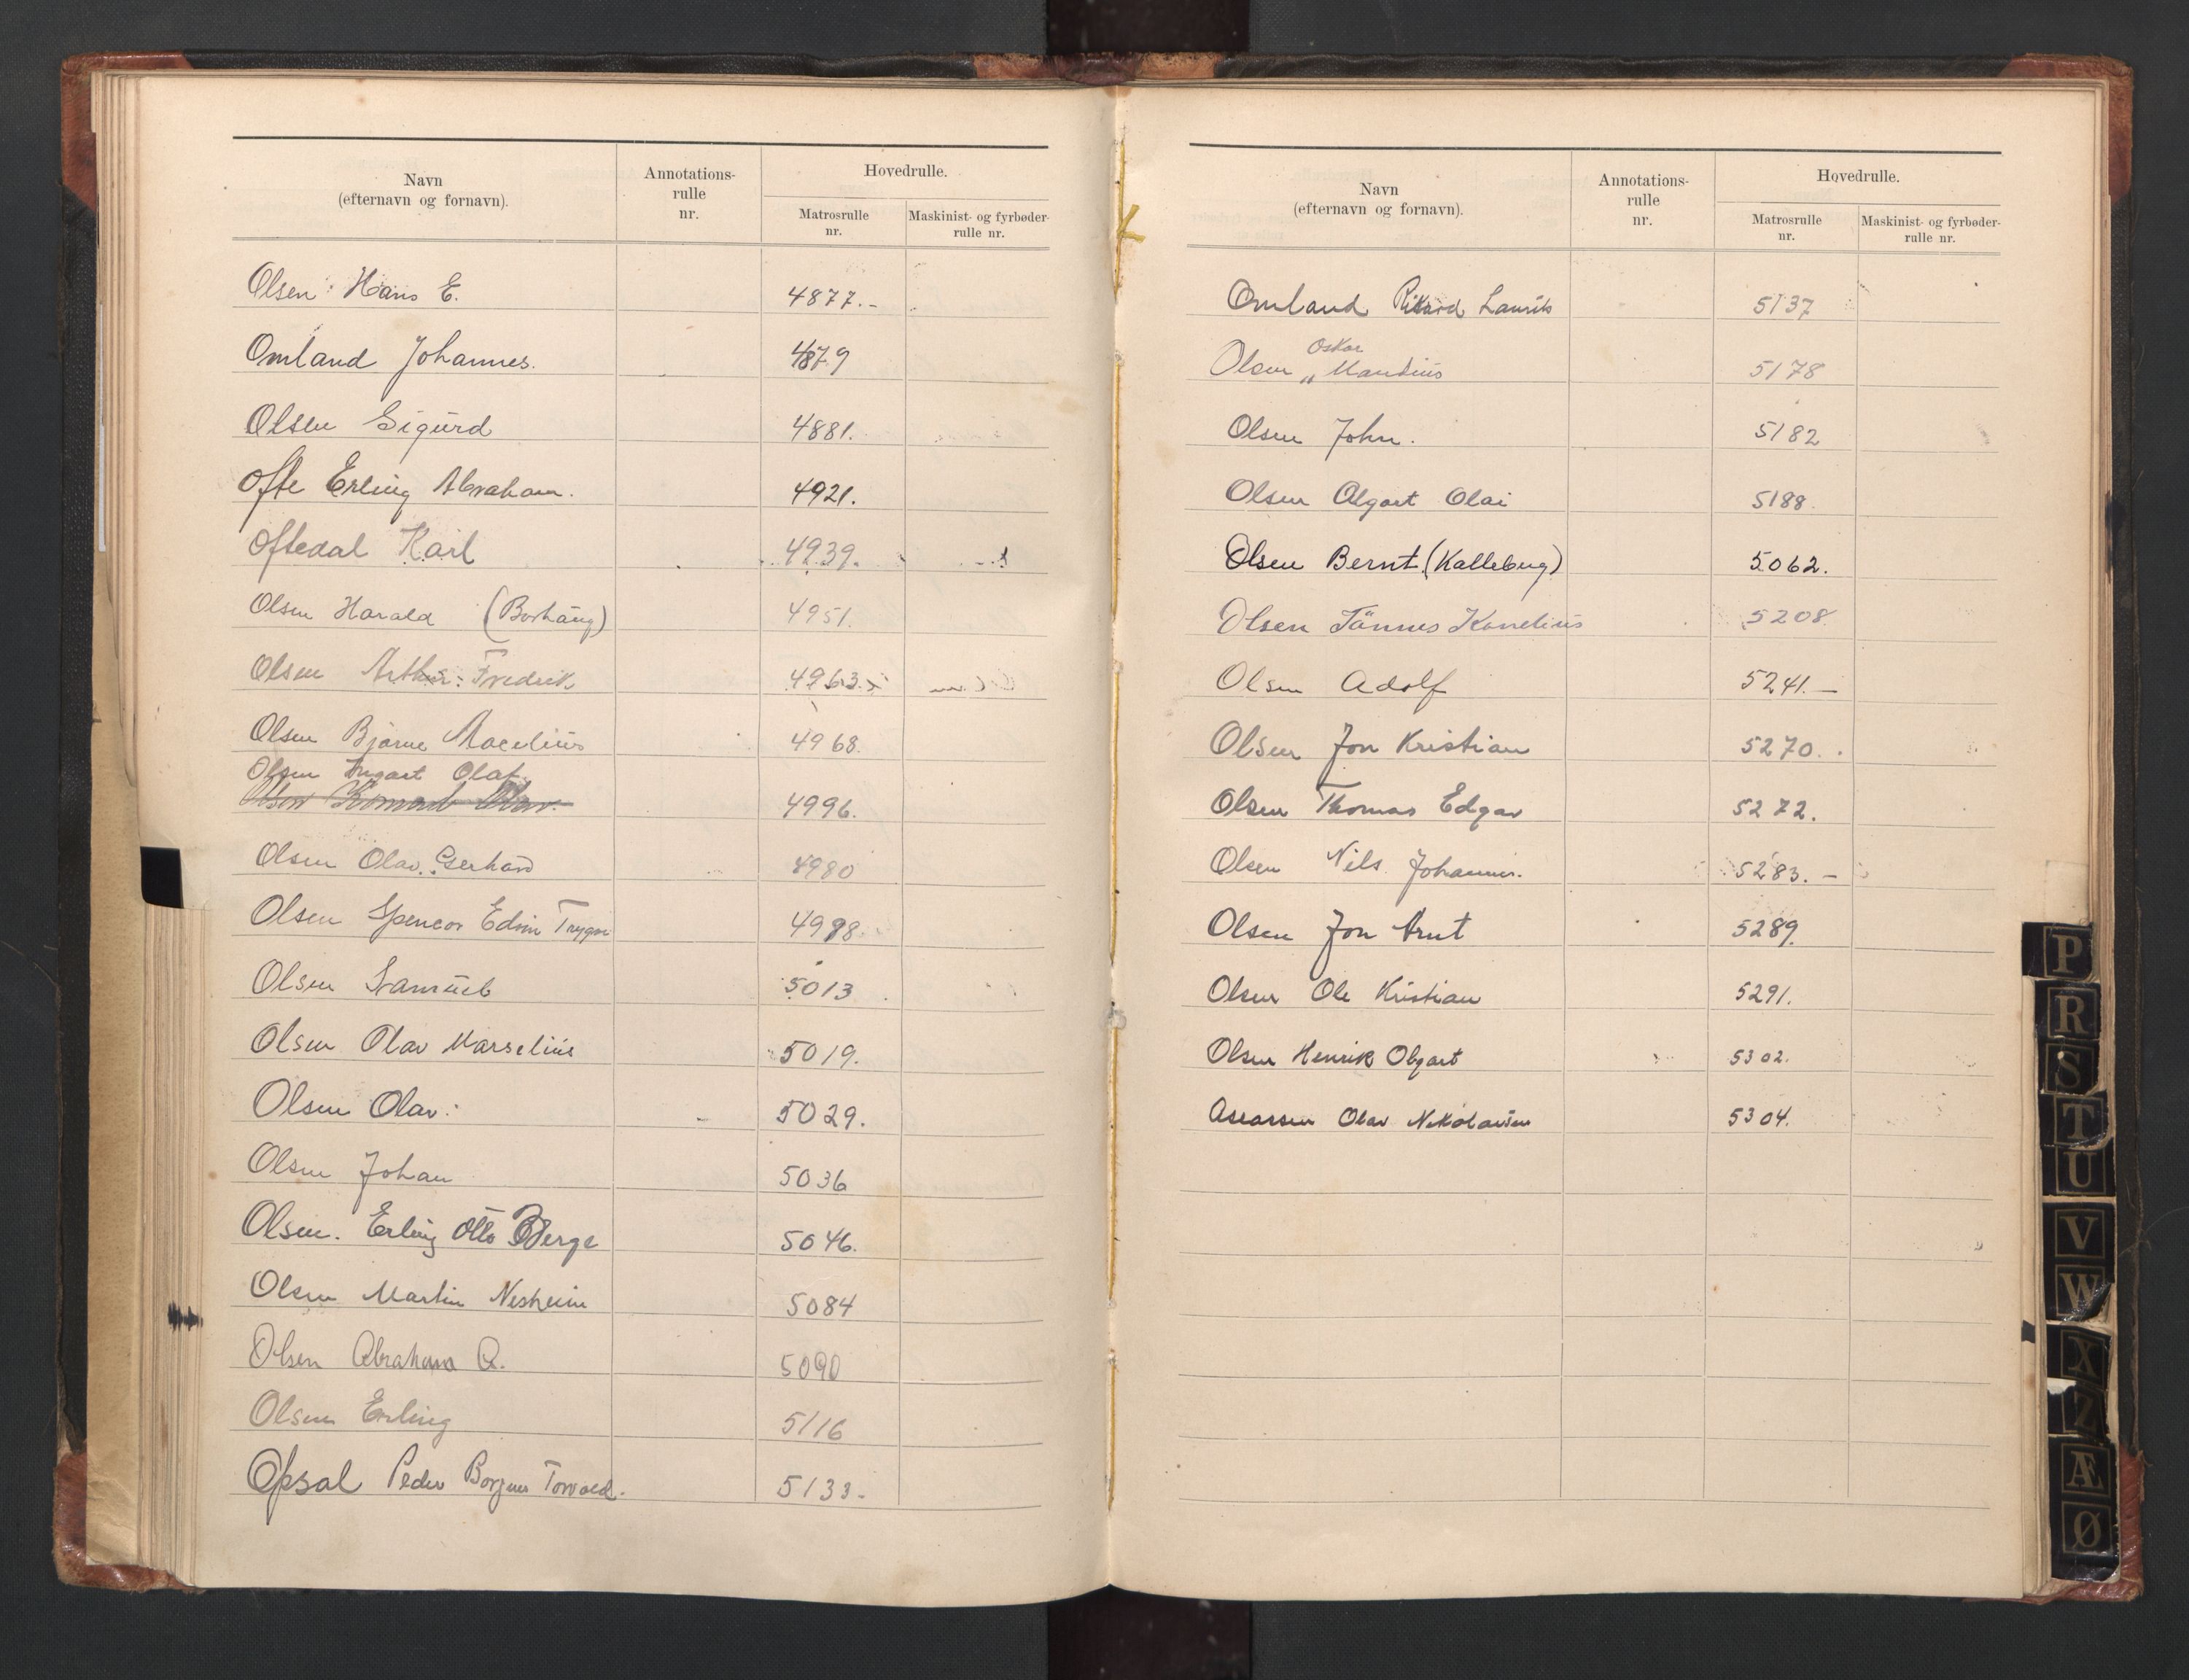 Navn
(efternavn og fornavn).
Annotations-
rulle
nr.
Hovedrulle.
Matrosrulle
nr.
Maskinist- og fyrbøder-
rulle nr.
Olsen Hans E. 4877.-
Omland Johannes. 4879
Olsen Sigurd 4881.
Ofte Erling Abraham. 4921.
Oftedal Karl 4939.
Olsen Harald (Borhaug) 4951.
Olsen Arthur Fredrik 4963.
Olsen Bjarne 4968.
Olsen Ingart Olaf
Olsen 4996.
Olsen Olav Gerhard 4980
Olsen Spencor Edvin Trygve 4998.
Olsen Samuel 5013
Olsen Olav Marselius 5019.
Olsen Olav. 5029.
Olsen Johan 5036
Olsen. Erling Otto Berge 5046.
Olsen Martin Nesheim 5084
Olsen Abraham A. 5090
Olsen Erling 5116
Opsal Peder Torvald. 5133-
Navn
(efternavn og fornavn).
Annotations-
rulle
nr.
Hovedrulle.
Matrosrulle
nr.
Maskinist- og fyrbøder-
rulle nr.
Omland Rikard Laurits 5137
Oskar
Olsen „ Mandius 5178
Olsen John. 5182
Olsen Algart Olai 5188.
Olsen Bernt (Kalleberg) 5062.
Olsen Tønnes Kornelius 5208.
Olsen Adolf 5241.-
Olsen Jon Kristian 5270.
Olsen Thomas Edgar 5272.
Olsen Nils Johannes. 5283.-
Olsen Jon Arnt 5289.
Olsen Ole Kristian 5291.
Olsen Henrik Olgart 5302.
Olav Nikolaisen 5304.
P
R
S
T
U
V
W
X
Z
Æ
Ø